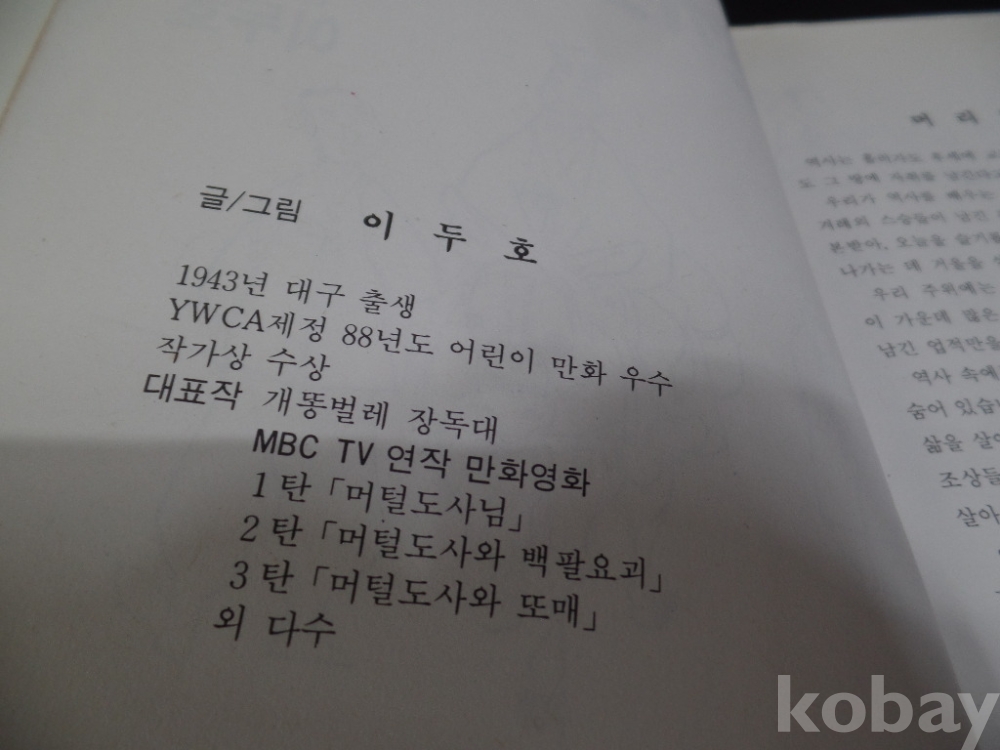 글/그림 이 두 호
1943년 대구 출생
YWCA제정 88년도 어린이 만화 우수
작가상 수상
대표작 개똥벌레 장독대
MBC TV 연작 만화영화
1탄 「머털도사님」
2탄 「머털도사와 백팔요괴」
3탄 「머털도사와 또매」
외 다수
머 리
역사는 흘러가도
도 그 땅에 자취를
우리가 역사를 배우는
겨레의 스승들이 남긴
본받아, 오늘을 슬기롭
나가는 데 거울을
우리 주위에는
이 가운데 많은
남긴 업적만을
역사 속에
숨어 있습
삶을 살
조상들
살아
kobay